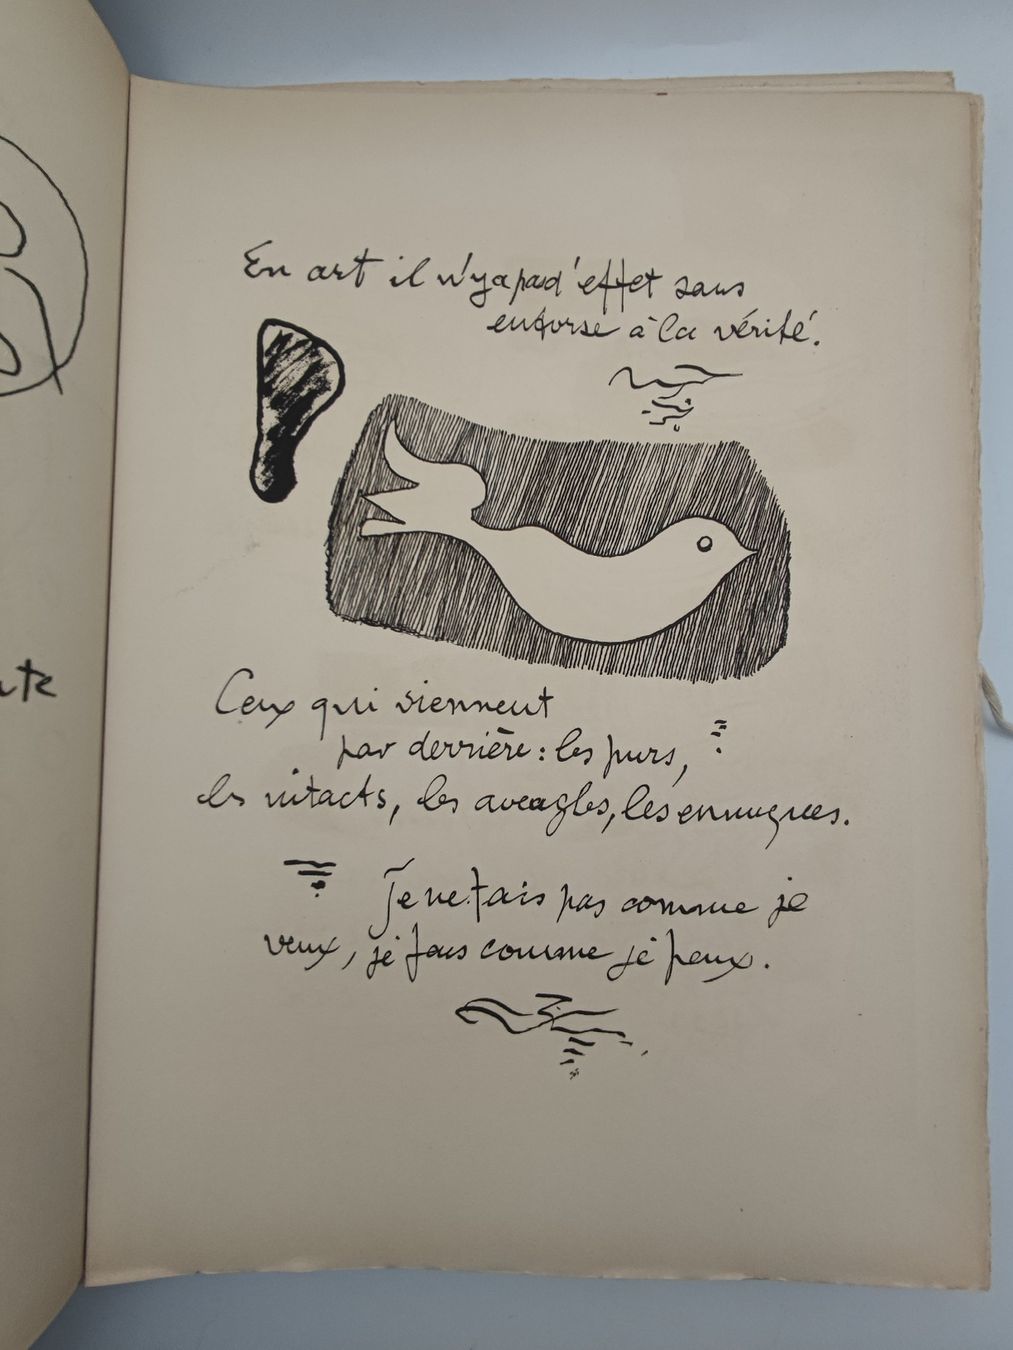 En art il n'y a pas d'effet sans
entorse à la vérité.
Ceux qui viennent
par derrière : les purs,
les intacts, les aveugles, les ennuques.
Je ne fais pas comme je
veux, je fais comme je peux.